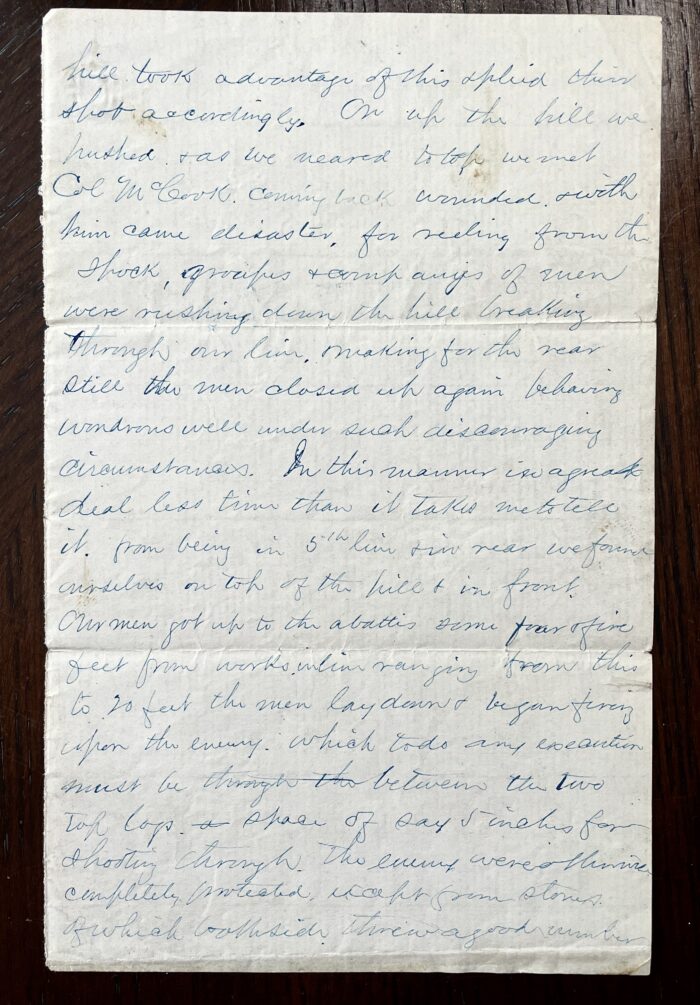 hill took advantage of this & plied their
shot accordingly. On up the hill we
pushed & as we neared to top we met
Col McCook. coming back wounded. & with
him came disaster, for reeling from the
shock, groups & companies of men
were rushing down the hill breaking
through our line. making for the rear
still the men closed up again behaving
wondrous well under such discouraging
circumstances. In this manner in a great
deal less time than it takes me to tell
it. from being in 5th line & in rear we found
ourselves on top of the hill & in front.
Our men got up to the abattis some four & five
feet from works. in line ranging from this
to 20 feet the men lay down & began firing
upon the enemy. which to do any execution
must be through the between the two
top logs. a space of say 5 inches for
shooting through. The enemy were otherwise
completely protected, except from stones.
of which both side. threw a good number